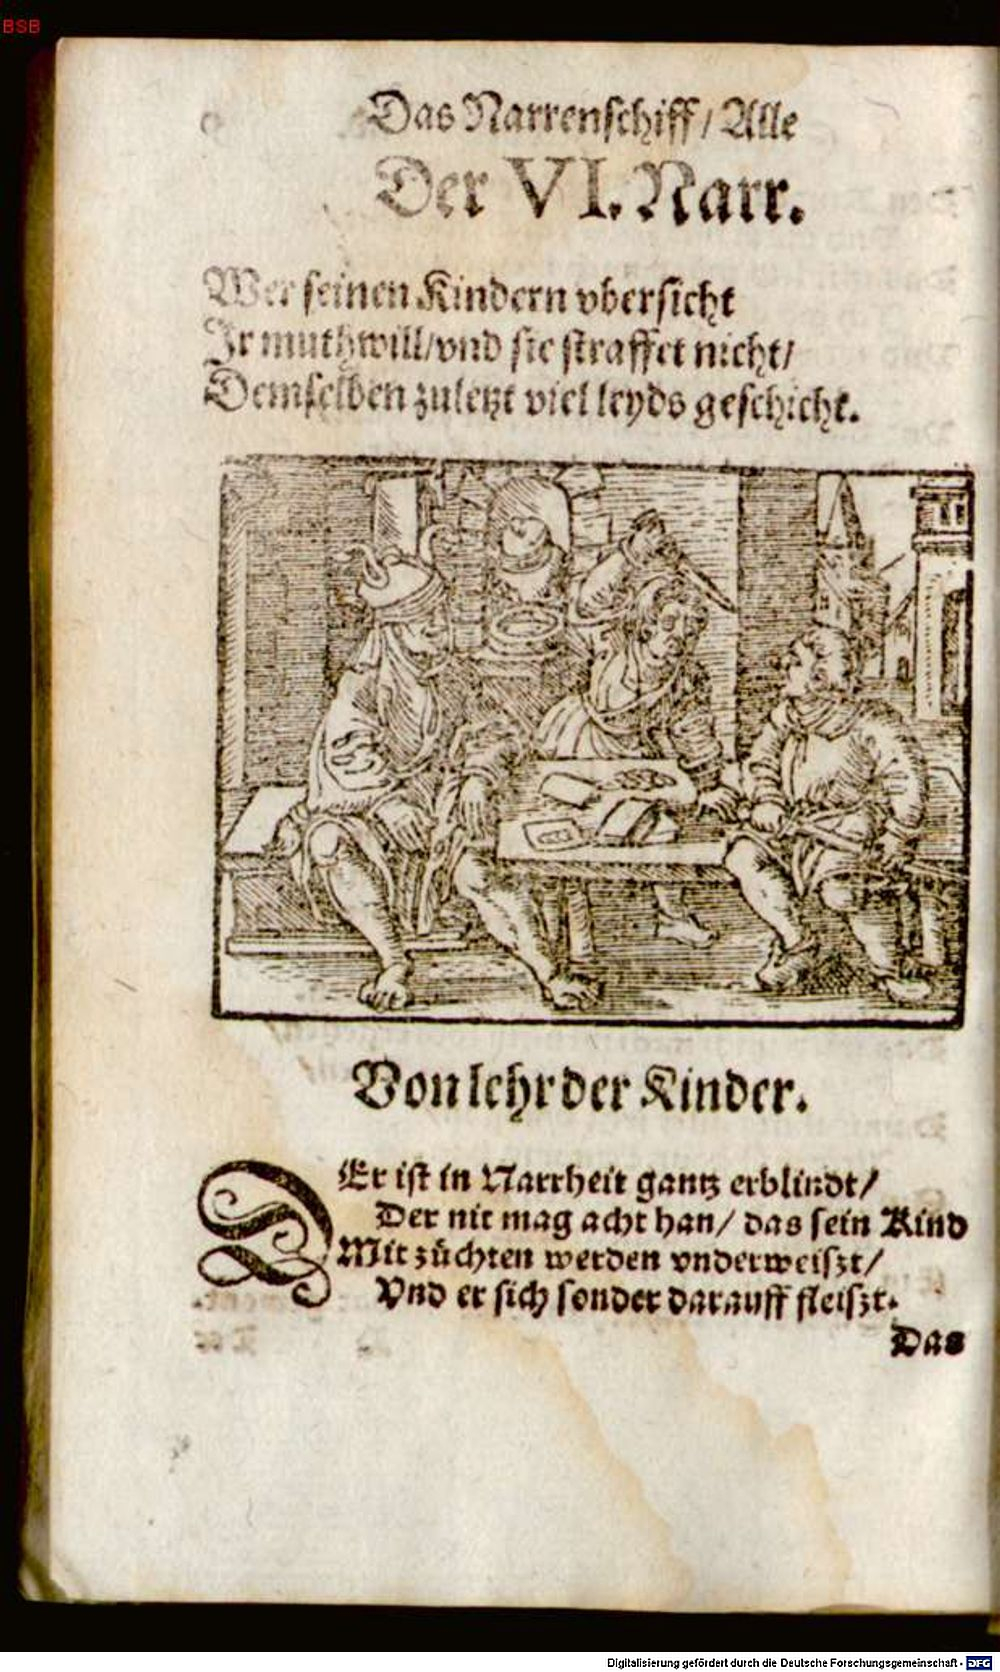 BSB
Das Narrenschiff / Alle
Der VI. Narr.
Wer seinen Kindern vbersicht
Ir muthwill / vnd sie straffet nicht /
Demselben zuletzt viel leyds geschicht.
Von lehr der Kinder.
DEr ist in Narrheit gantz erblindt /
Der nit mag acht han / das sein Kind
Mit züchten werden vnderweiszt /
Vnd er sich sonder darauff fleiszt.
Das
Digitalisierung gefördert durch die Deutsche Forschungsgemeinschaft - DFG